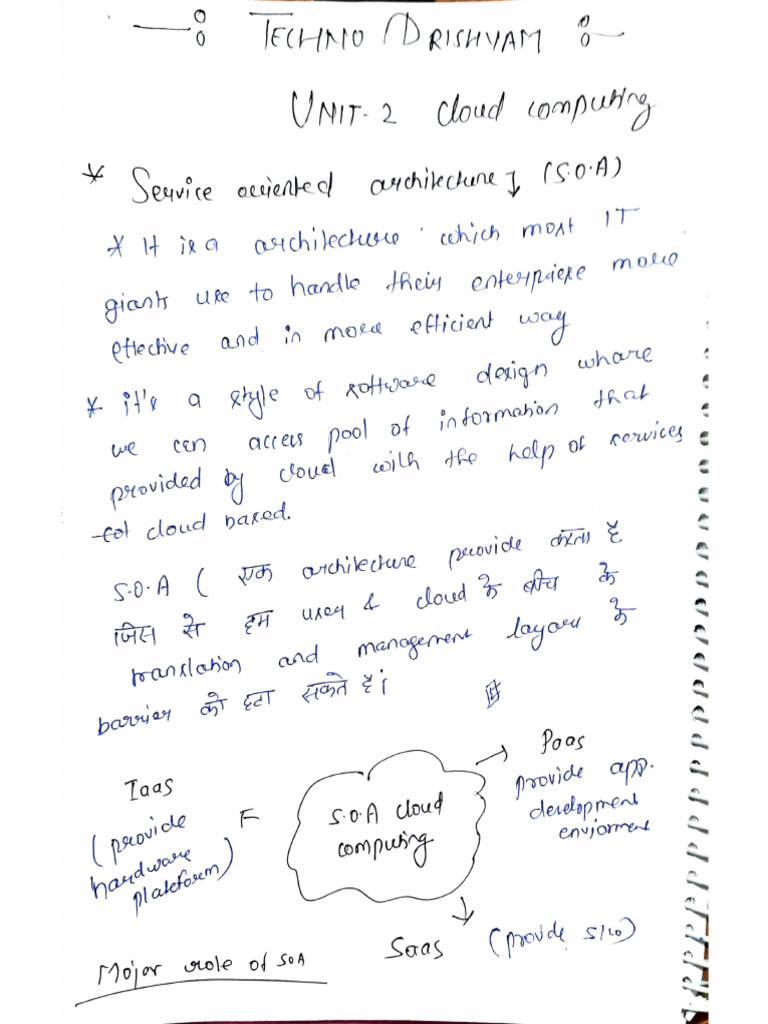 —: TECHNO DRISHYAM :—
UNIT-2 Cloud computing
* Service oriented architecture ↓ (S.O.A)
* It is a architecture which most IT
giants use to handle their enterprise more
effective and in more efficient way
* it's a style of software design whare
we can access pool of information that
provided by cloud with the help of services
cloud based.
S.O.A ( एक architecture provide करता है
जिस से हम user & cloud के बीच के
translation and management layars के
barrier को हटा सकते हैं।
Iaas
(provide
hardware
plateform)
S.O.A cloud
computing
→ Paas
provide app.
development
enviorment
↓
Saas (provide s/w)
Major role of SOA